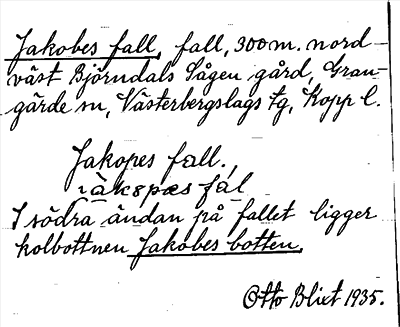 Jakobes fall, fall, 300 m. nord-
väst Björndals Sågen gård, Gran-
gärde sn, Västerbergslags tg, Kopp l.
Jakopes fall.,
I södra ändan på fallet ligger
kolbottnen Jakobes botten.
Otto Blixt 1935.